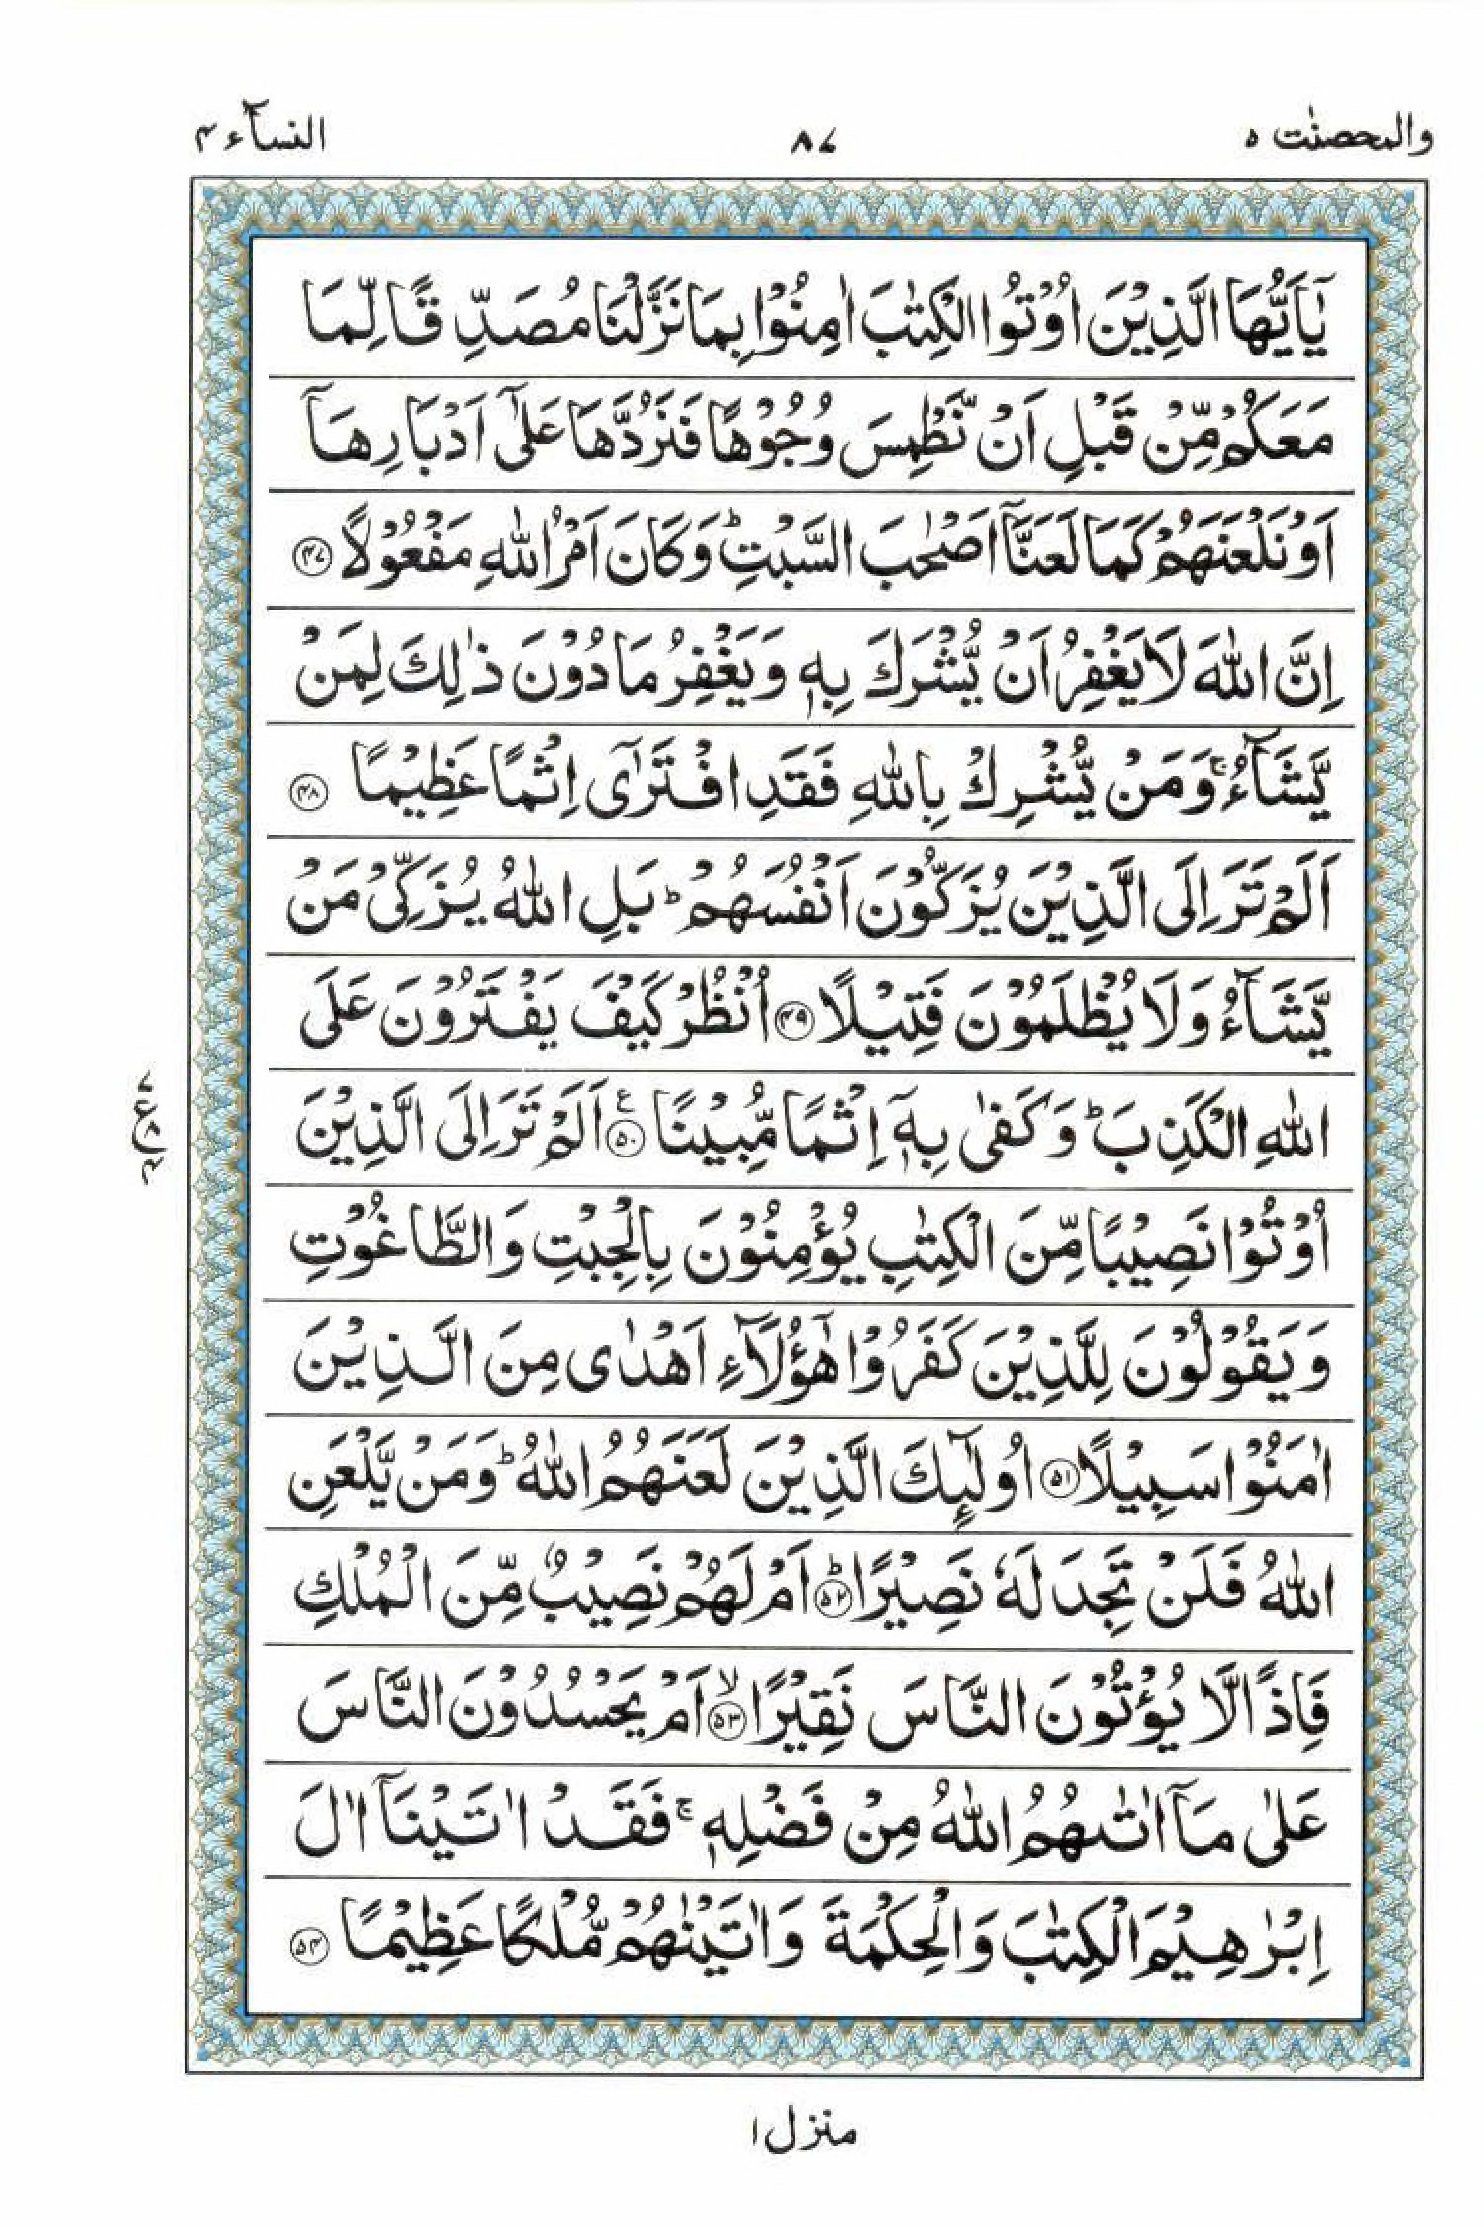 والمحصنٰت ۵ ۸۷ النسآء ۴
يٰٓاَيُّهَا الَّذِيْنَ اُوْتُوا الْكِتٰبَ اٰمِنُوْا بِمَا نَزَّلْنَا مُصَدِّقًا لِّمَا
مَعَكُمْ مِّنْ قَبْلِ اَنْ نَّطْمِسَ وُجُوْهًا فَنَرُدَّهَا عَلٰٓى اَدْبَارِهَآ
اَوْ نَلْعَنَهُمْ كَمَا لَعَنَّآ اَصْحٰبَ السَّبْتِ ؕ وَكَانَ اَمْرُ اللّٰهِ مَفْعُوْلًا ﴿۴۷﴾
اِنَّ اللّٰهَ لَا يَغْفِرُ اَنْ يُّشْرَكَ بِهٖ وَيَغْفِرُ مَا دُوْنَ ذٰلِكَ لِمَنْ
يَّشَآءُ ۚ وَمَنْ يُّشْرِكْ بِاللّٰهِ فَقَدِ افْتَرٰٓى اِثْمًا عَظِيْمًا ﴿۴۸﴾
اَلَمْ تَرَ اِلَى الَّذِيْنَ يُزَكُّوْنَ اَنْفُسَهُمْ ؕ بَلِ اللّٰهُ يُزَكِّىْ مَنْ
يَّشَآءُ وَلَا يُظْلَمُوْنَ فَتِيْلًا ﴿۴۹﴾ اُنْظُرْ كَيْفَ يَفْتَرُوْنَ عَلَى
اللّٰهِ الْكَذِبَ ؕ وَكَفٰى بِهٖٓ اِثْمًا مُّبِيْنًا ﴿۵۰﴾ ع اَلَمْ تَرَ اِلَى الَّذِيْنَ
اُوْتُوْا نَصِيْبًا مِّنَ الْكِتٰبِ يُؤْمِنُوْنَ بِالْجِبْتِ وَالطَّاغُوْتِ
وَيَقُوْلُوْنَ لِلَّذِيْنَ كَفَرُوْا هٰٓؤُلَآءِ اَهْدٰى مِنَ الَّذِيْنَ
اٰمَنُوْا سَبِيْلًا ﴿۵۱﴾ اُولٰٓئِكَ الَّذِيْنَ لَعَنَهُمُ اللّٰهُ ؕ وَمَنْ يَّلْعَنِ
اللّٰهُ فَلَنْ تَجِدَ لَهٗ نَصِيْرًا ؕ﴿۵۲﴾ اَمْ لَهُمْ نَصِيْبٌ مِّنَ الْمُلْكِ
فَاِذًا لَّا يُؤْتُوْنَ النَّاسَ نَقِيْرًا ۙ﴿۵۳﴾ اَمْ يَحْسُدُوْنَ النَّاسَ
عَلٰى مَآ اٰتٰىهُمُ اللّٰهُ مِنْ فَضْلِهٖ ۚ فَقَدْ اٰتَيْنَآ اٰلَ
اِبْرٰهِيْمَ الْكِتٰبَ وَالْحِكْمَةَ وَاٰتَيْنٰهُمْ مُّلْكًا عَظِيْمًا ﴿۵۴﴾
۷
ع ۸
۴
منزل ۱